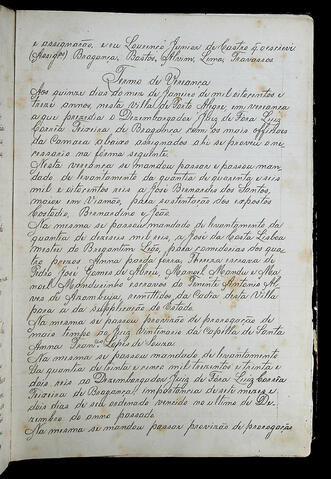 e assignarão, e eu Lourenço Junior de Castro q. o escrevi
(Assigdos) Bragança, Bastos, Alvim, Lima, Travassos
Termo de Vereança
Aos quinze dias do mez de Janeiro de mil oitocentos e
treze annos, nesta villa de Porto Alegre, em vereança
a que presidio o Dezembargador Juiz de Fora Luiz
Corrêa Teixeira de Bragança com os mais officiaes
da Camara abaixo assignados ahi se proveu o ne-
cessario na forma seguinte.
Nesta vereança se mandou passar e passou man-
dado de levantamento da quantia de quarenta e seis
mil e oitocentos reis a José Bernardes dos Santos,
maior em Viamão, para sustentação dos expostos
Custodio, Bernardino e João.
Na mesma se passou mandado de levantamento da
quantia de dezeseis mil reis, a José da Costa Lisboa
mestre do Bragantim Leão, para comedorias dos qua-
tro prezos Anna parda forra, Thereza escrava de
Pedro José Gomes de Abreu, Manoel Mandu e Ma-
noel Manduzinho escravos do Tenente Antonio Al-
ves de Azambuja, remettidos da Cadia desta Villa
para a da supplicação do Estado.
Na mesma se passou provisão de prorogação de
mais tempo ao Juiz Vintenario da Capella de Santa
Anna Francco Lopes de Souza.
Na mesma se passou mandado de levantamento
da quantia de trinta e cinco mil trezentos e trinta e
dois reis ao Dezembargador Juiz de Fora Luiz Corrêa
Teixeira de Bragança importancia de sete mezes e
dois dias de seu ordenado vencido no ultimo de De-
zembro do anno passado.
Na mesma se mandou passar provizão de prorogação